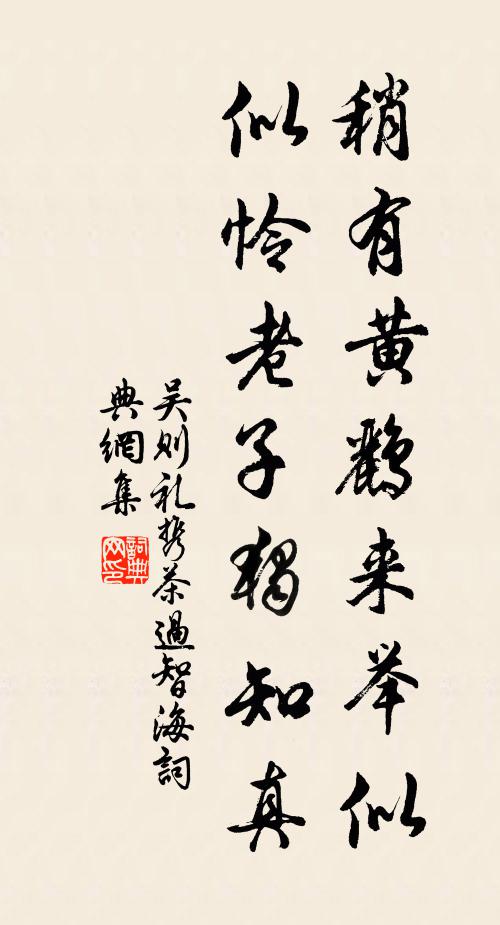 稍有黄鹂来举似
似怜老子独知真
吴则礼携茶過智海詞
典網集
詞典網印